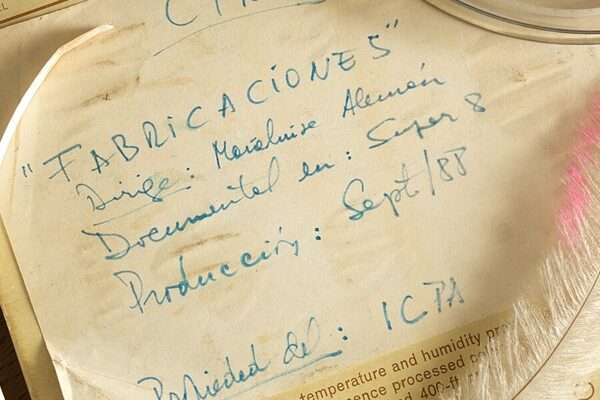 "FABRiCACiONES"
Dirige: Alemán
Documental en: Super 8
Producción: Sept/88
Propiedad del: ICPA
temperature and humidity
processed
400-ft